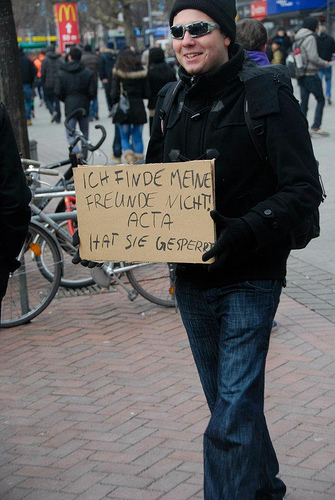 ICH FINDE MEINE
FREUNDE NICHT!
ACTA
HAT SIE GESPERRT